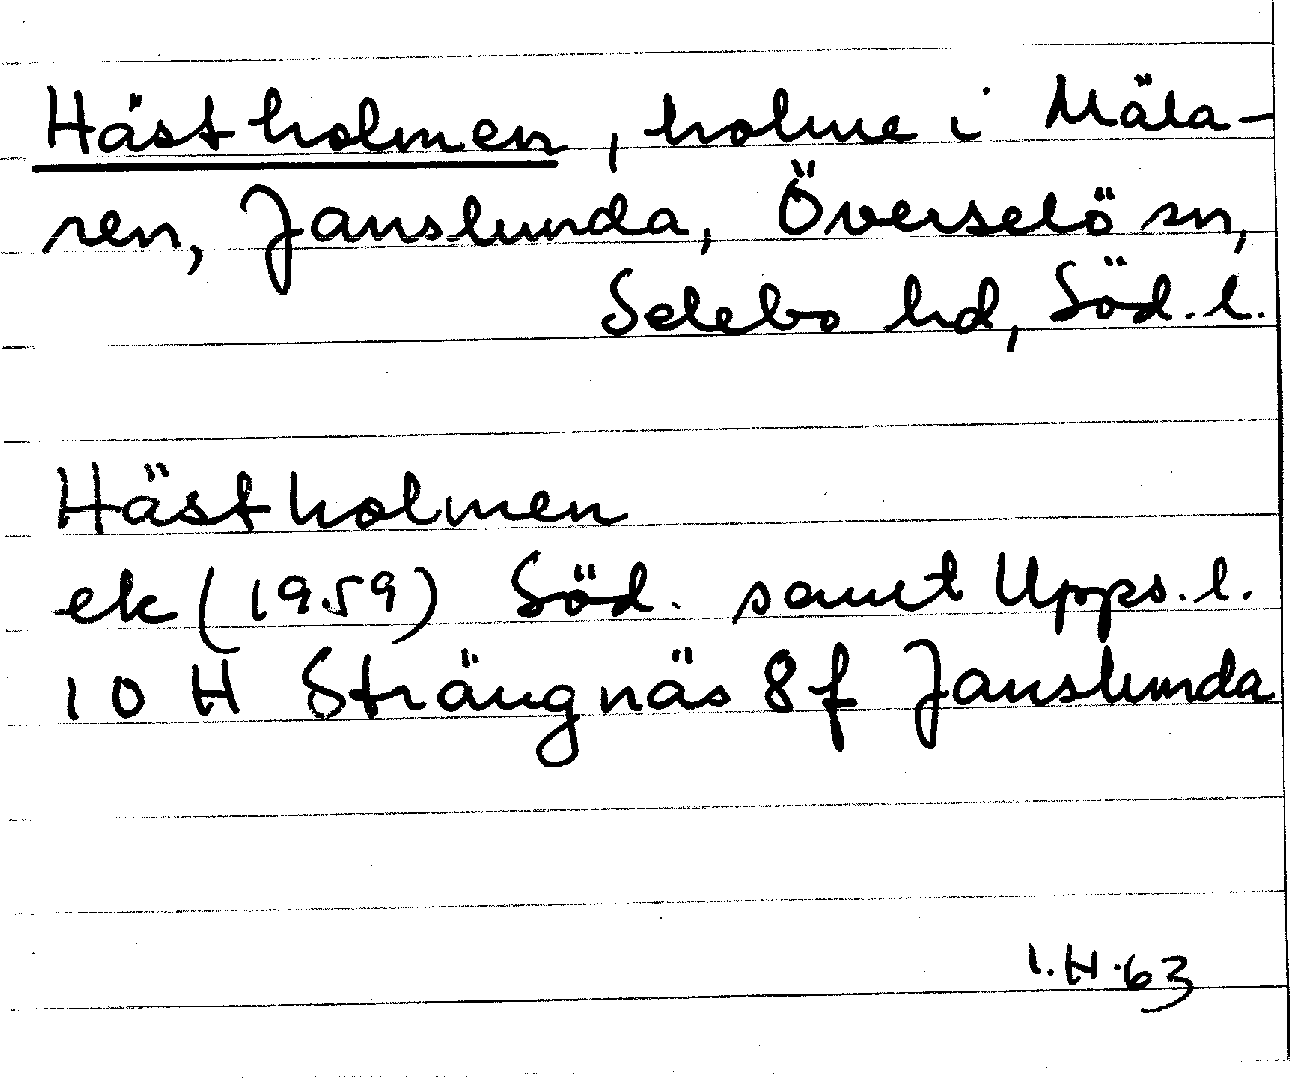 Hästholmen, holme i Mäla-
ren, Janslunda, Överselö sn,
Selebo hd, Söd. l.
Hästholmen
ek (1959) Söd. samt Upps. l.
10 H Strängnäs 8 f Janslunda
I.H.63